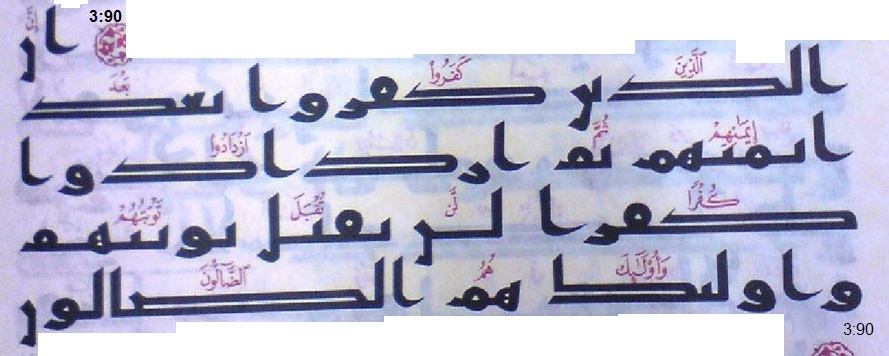 3:90
إِنَّ
ان
ٱلَّذِينَ كَفَرُوا۟ بَعْدَ
الذين كفروا بعد
إِيمَٰنِهِمْ ثُمَّ ٱزْدَادُوا۟
ايمنهم ثم ازدادوا
كُفْرًا لَّن تُقْبَلَ تَوْبَتُهُمْ
كفرا لن تقبل توبتهم
وَأُو۟لَٰٓئِكَ هُمُ ٱلضَّآلُّونَ
واولئك هم الضالون
3:90